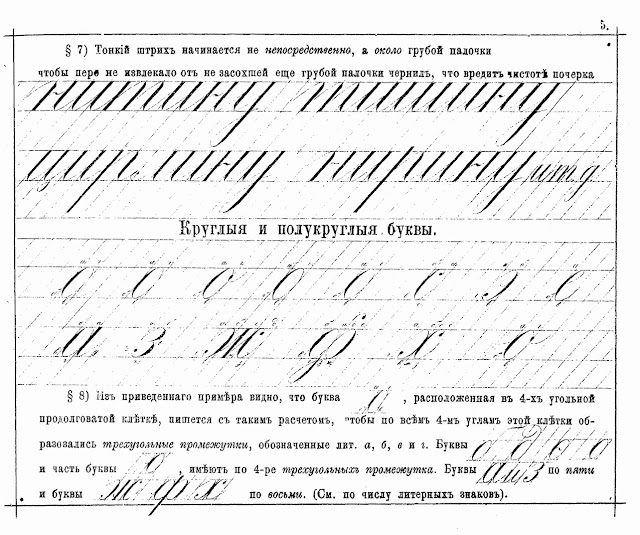 5.
§ 7) Тонкій штрихъ начинается не непосредственно, а около грубой палочки
чтобы перо не извлекало отъ не засохшей еще грубой палочки чернилъ, что вредитъ чистотѣ почерка
нитину тишину
ширину итд
Круглыя и полукруглыя буквы.
а з ж ф х с
§ 8) Изъ приведеннаго примѣра видно, что буква а, расположенная въ 4-хъ угольной
продолговатой клѣткѣ, пишется съ такимъ расчетомъ, чтобы по всѣмъ 4-мъ угламъ этой клѣтки об-
разовались трехугольные промежутки, обозначенные лит. а, б, в и г. Буквы
и часть буквы , имѣютъ по 4-ре трехугольныхъ промежутка. Буквы а и З по пяти
и буквы ж ф х по восьми. (См. по числу литерныхъ знаковъ).